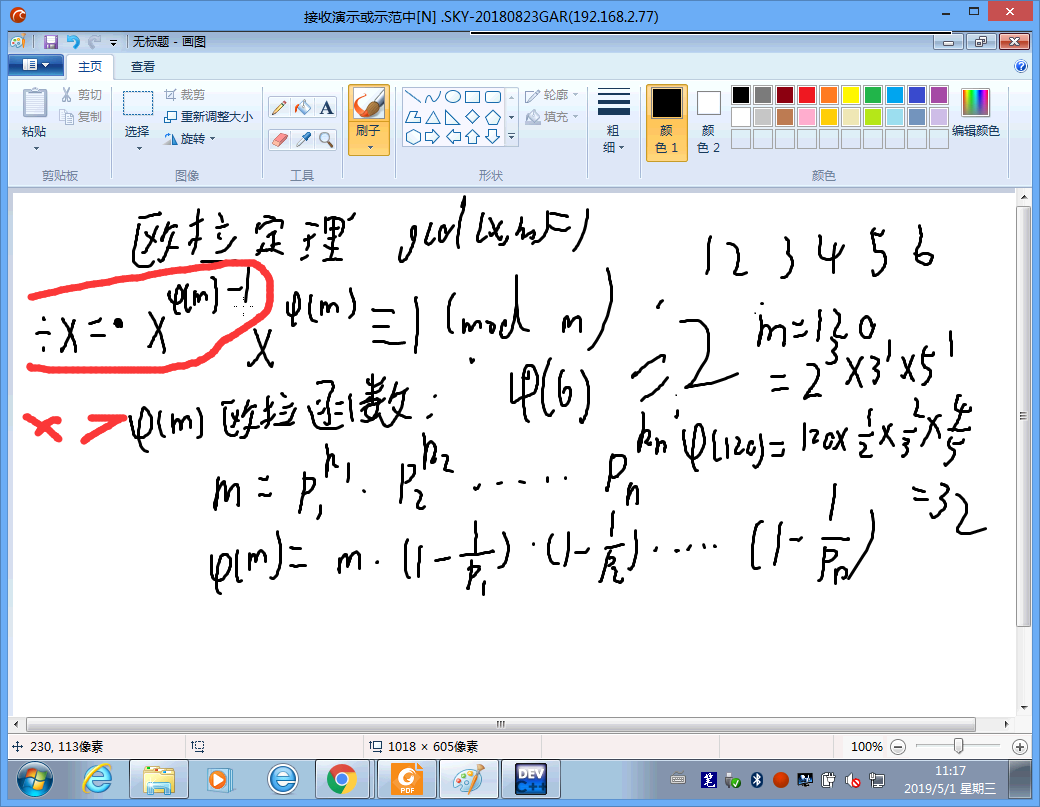 接收演示或示范中[N] .SKY-20180823GAR(192.168.2.77)
无标题 - 画图
主页 查看
粘贴 剪切 复制 选择 裁剪 重新调整大小 旋转 A 刷子 轮廓 填充 粗细 颜色 1 颜色 2 编辑颜色
剪贴板 图像 工具 形状 颜色
欧拉定理 gcd(x,m)=1
1 2 3 4 5 6
÷x = · x^{φ(m)-1}
x^{φ(m)} ≡ 1 (mod m)
φ(m) 欧拉函数:
φ(6) = 2
m=120
= 2^3×3^1×5^1
φ(120)= 120×1/2×2/3×4/5
=32
m = p_1^{k_1} · p_2^{k_2} ······ p_n^{k_n}
φ(m)= m · (1-1/p_1) · (1-1/p_2) ······ (1-1/p_n)
230, 113像素 1018 × 605像素 100%
PDF DEV C++ 11:17
2019/5/1 星期三